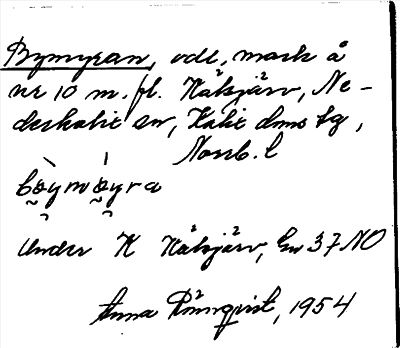 Bymyran, odl. mark å
nr 10 m. fl. Näsjärv, Ne-
derkalix sn, Kalix dms tg,
Norrb. l
bøymøyra
Under K Näsjärv, Ev 37 NO
Anna Rönnqvist, 1954